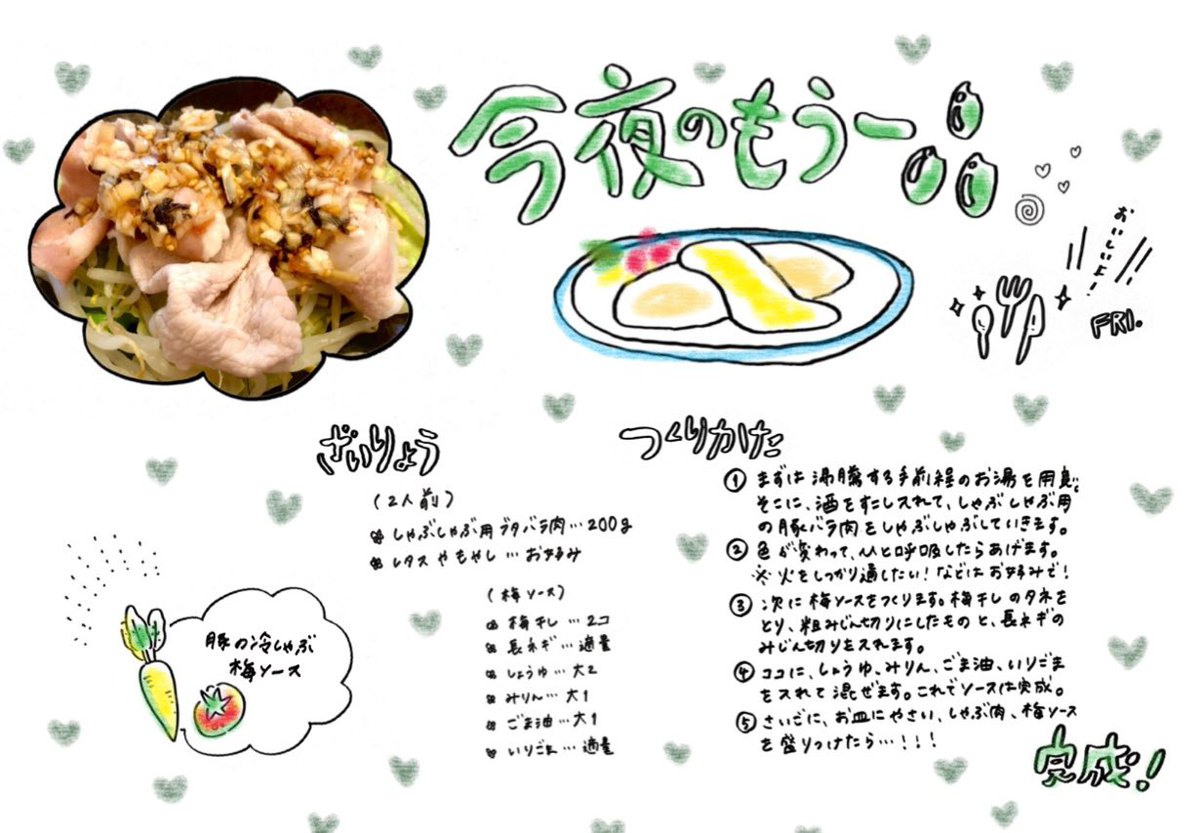 今夜のもう一品
おいしいよー!
FRI.
ざいりょう
(2人前)
しゃぶしゃぶ用ブタバラ肉…200g
レタスやもやし…お好み
(梅ソース)
梅干し…2コ
長ネギ…適量
しょうゆ…大2
みりん…大1
ごま油…大1
いりごま…適量
豚の冷しゃぶ
梅ソース
つくりかた
① まずは沸騰する手前程のお湯を用意。
そこに、酒をすこし入れて、しゃぶしゃぶ用
の豚バラ肉をしゃぶしゃぶしていきます。
② 色が変わって、ひと呼吸したらあげます。
※火をしっかり通したい!などはお好みで!
③ 次に梅ソースをつくります。梅干しのタネを
とり、粗みじん切りにしたものと、長ネギの
みじん切りを入れます。
④ ココに、しょうゆ、みりん、ごま油、いりごま
を入れて混ぜます。これでソースは完成。
⑤ さいごに、お皿にやさい、しゃぶ肉、梅ソース
を盛りつけたら…!!!
完成!